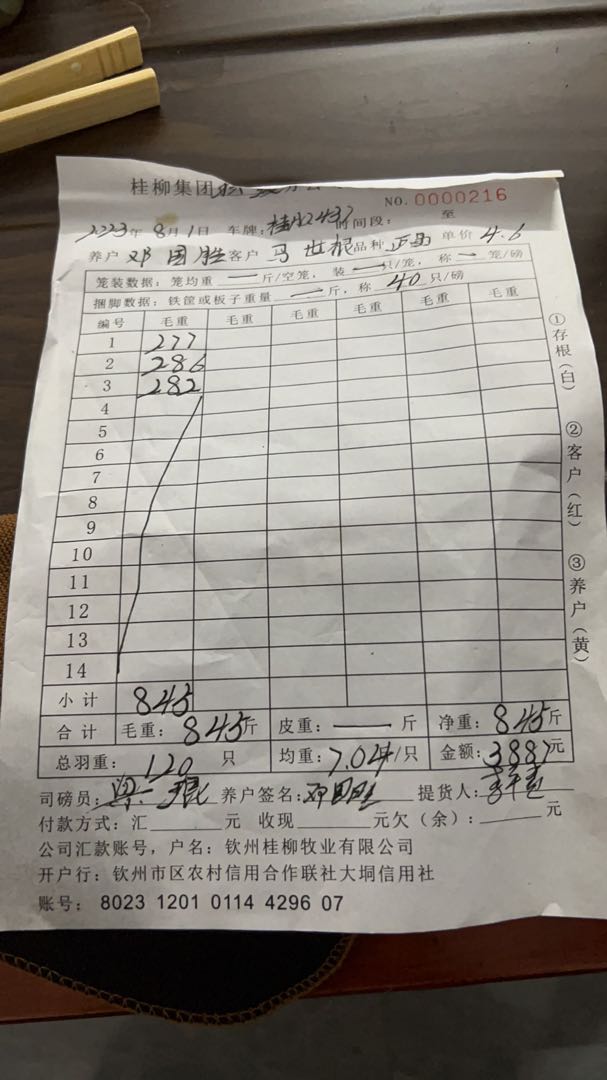 桂柳集团
NO. 0000216
2023年 8月1日 车牌: 时间段: 至
养户 邓国胜 客户 马世根 品种 正母 单价 4.6
笼装数据: 笼均重 — 斤/空笼, 装 — 只/笼, 称 — 笼/磅
捆脚数据: 铁筐或板子重量 — 斤, 称 40 只/磅
编号 毛重 毛重 毛重 毛重 毛重 毛重
1 277
2 286
3 282
4
5
6
7
8
9
10
11
12
13
14
小计 845
合计 毛重: 845斤 皮重: — 斤 净重: 845斤
总羽重: 120 只 均重: 7.04斤/只 金额: 3887元
司磅员: 养户签名: 邓国胜 提货人:
付款方式: 汇 元 收现 元欠(余): 元
公司汇款账号, 户名: 钦州桂柳牧业有限公司
开户行: 钦州市区农村信用合作联社大垌信用社
账号: 8023 1201 0114 4296 07
①存根(白)
②客户(红)
③养户(黄)